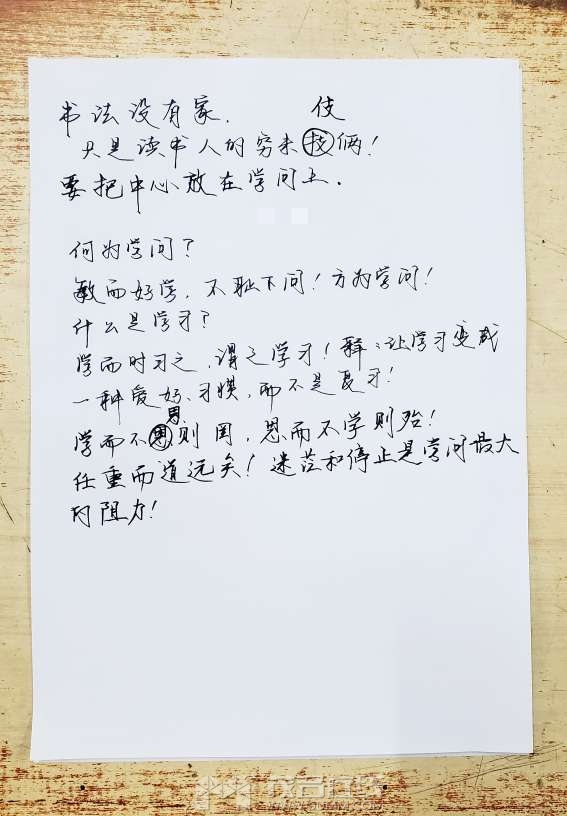 书法没有家.
伎
只是读书人的穷未技俩！
要把中心放在学问上.
何为学问？
敏而好学，不耻下问！方为学问！
什么是学习？
学而时习之，谓之学习！释：让学习变成
一种爱好、习惯，而不是复习！
思
学而不思则罔，思而不学则殆！
任重而道远矣！迷茫和停止是学问最大
的阻力！